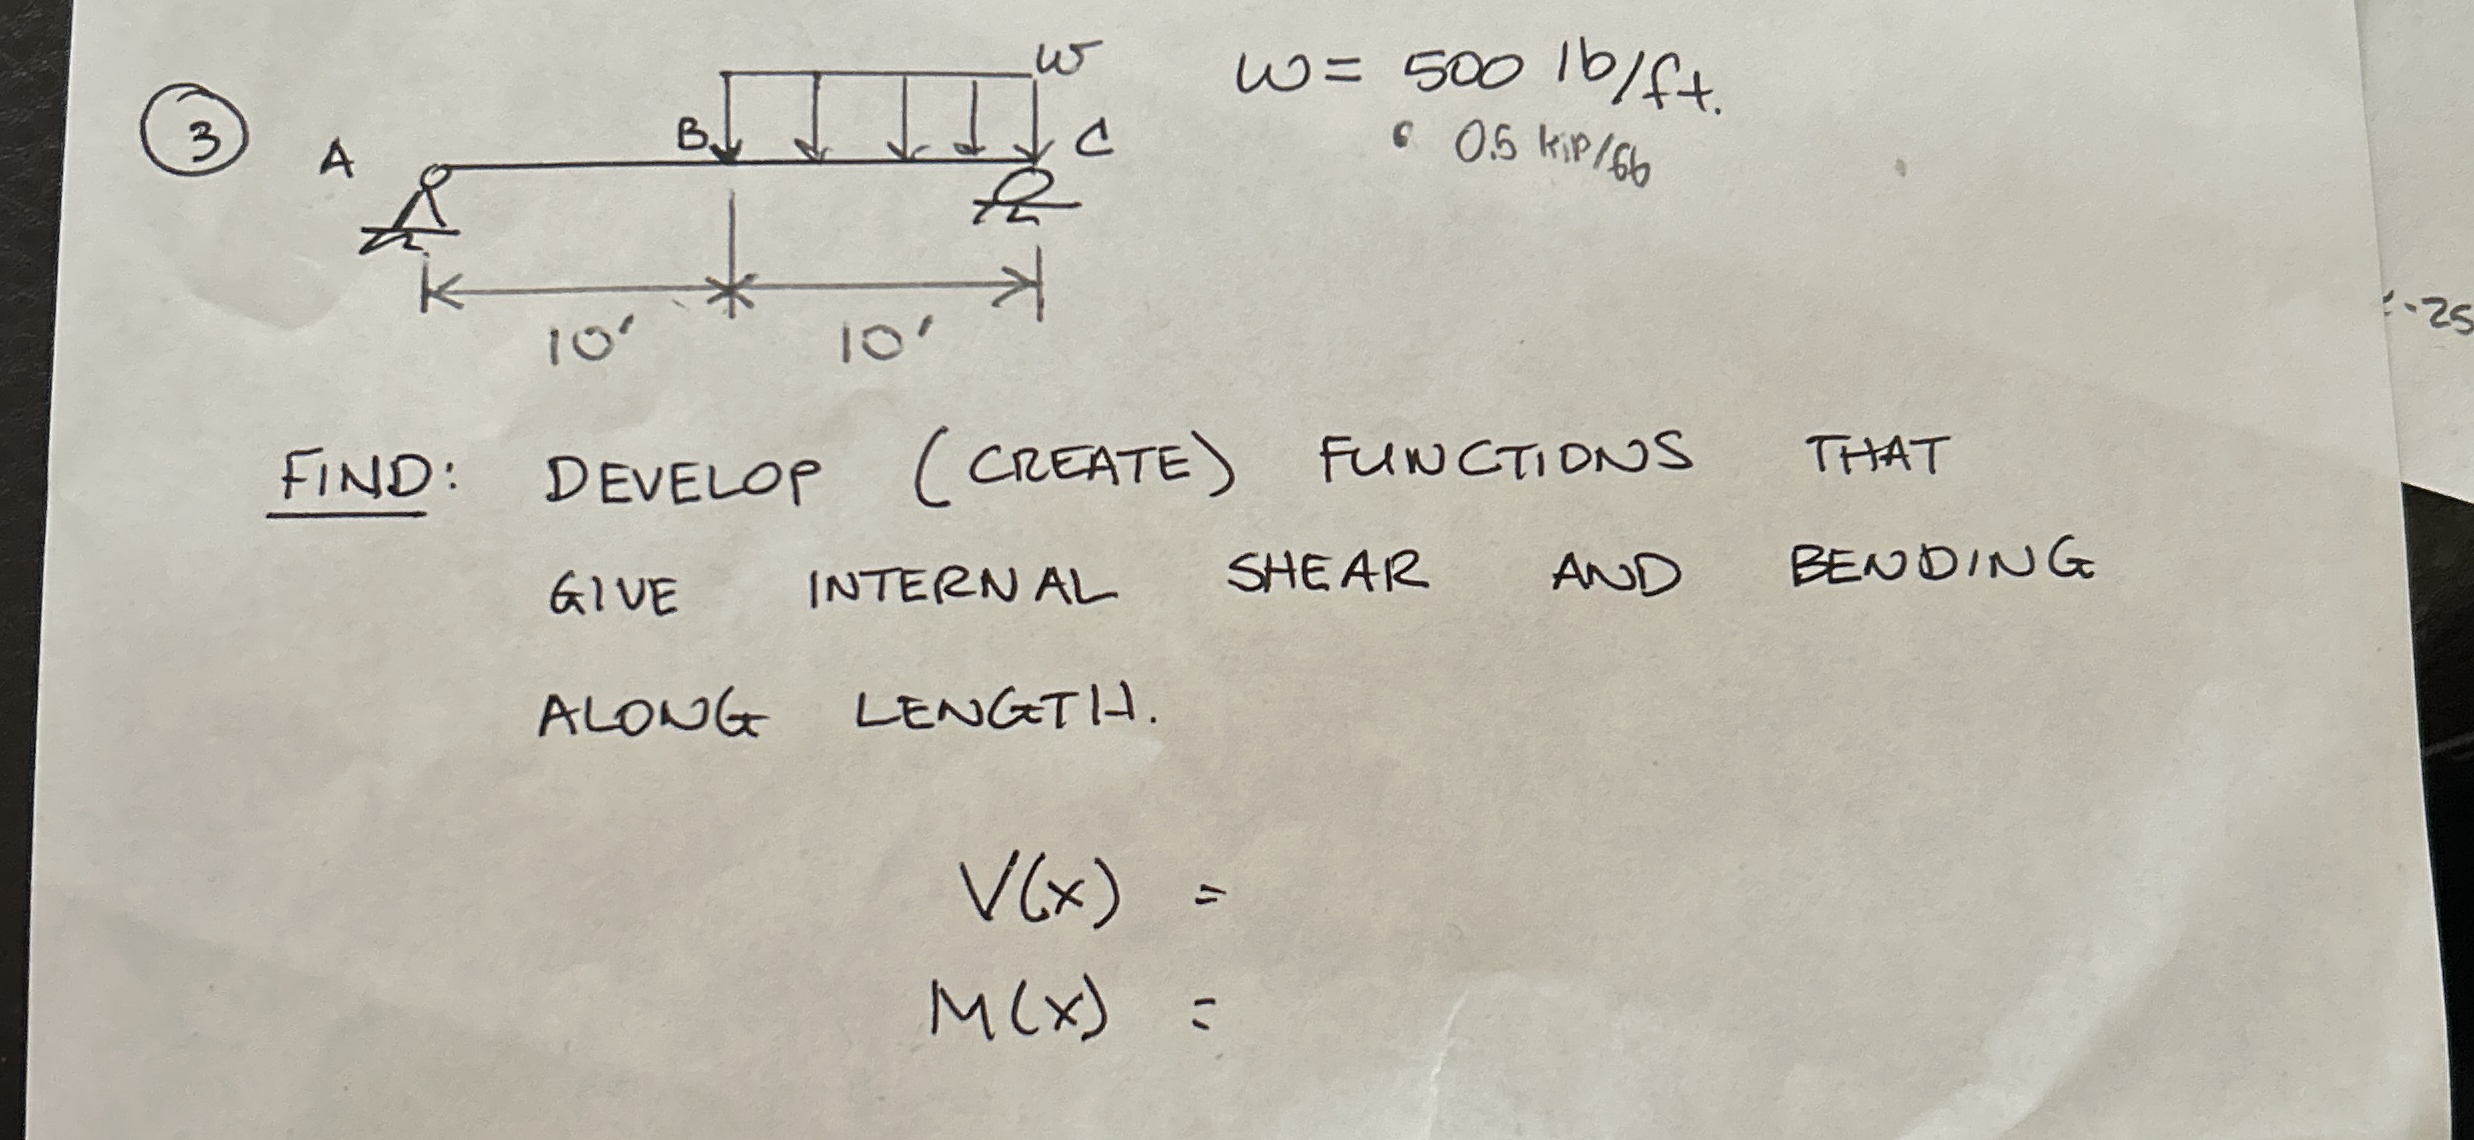 3
A
B
W
C
W = 500 lb/ft.
0.5 kip/
10'
10'
FIND: DEVELOP (CREATE) FUNCTIONS THAT
GIVE INTERNAL SHEAR AND BENDING
ALONG LENGTH.
V(x) =
M(x) =